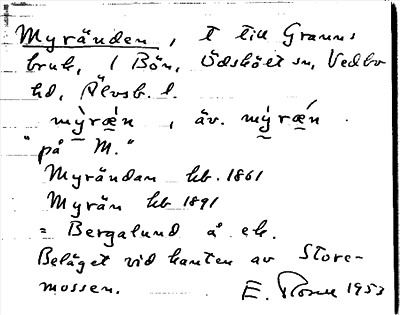 Myränden, t till Granns
bruk, 1 Bön, Ödskölt sn, Vedbo
hd, Älvsb. l.
mỳræ̀n, äv. mýræ̀n.
"på M."
Myrändan hb. 1861
Myrän hb 1891
= Bergalund å ek.
Beläget vid kanten av Store-
mossen. E. 1953